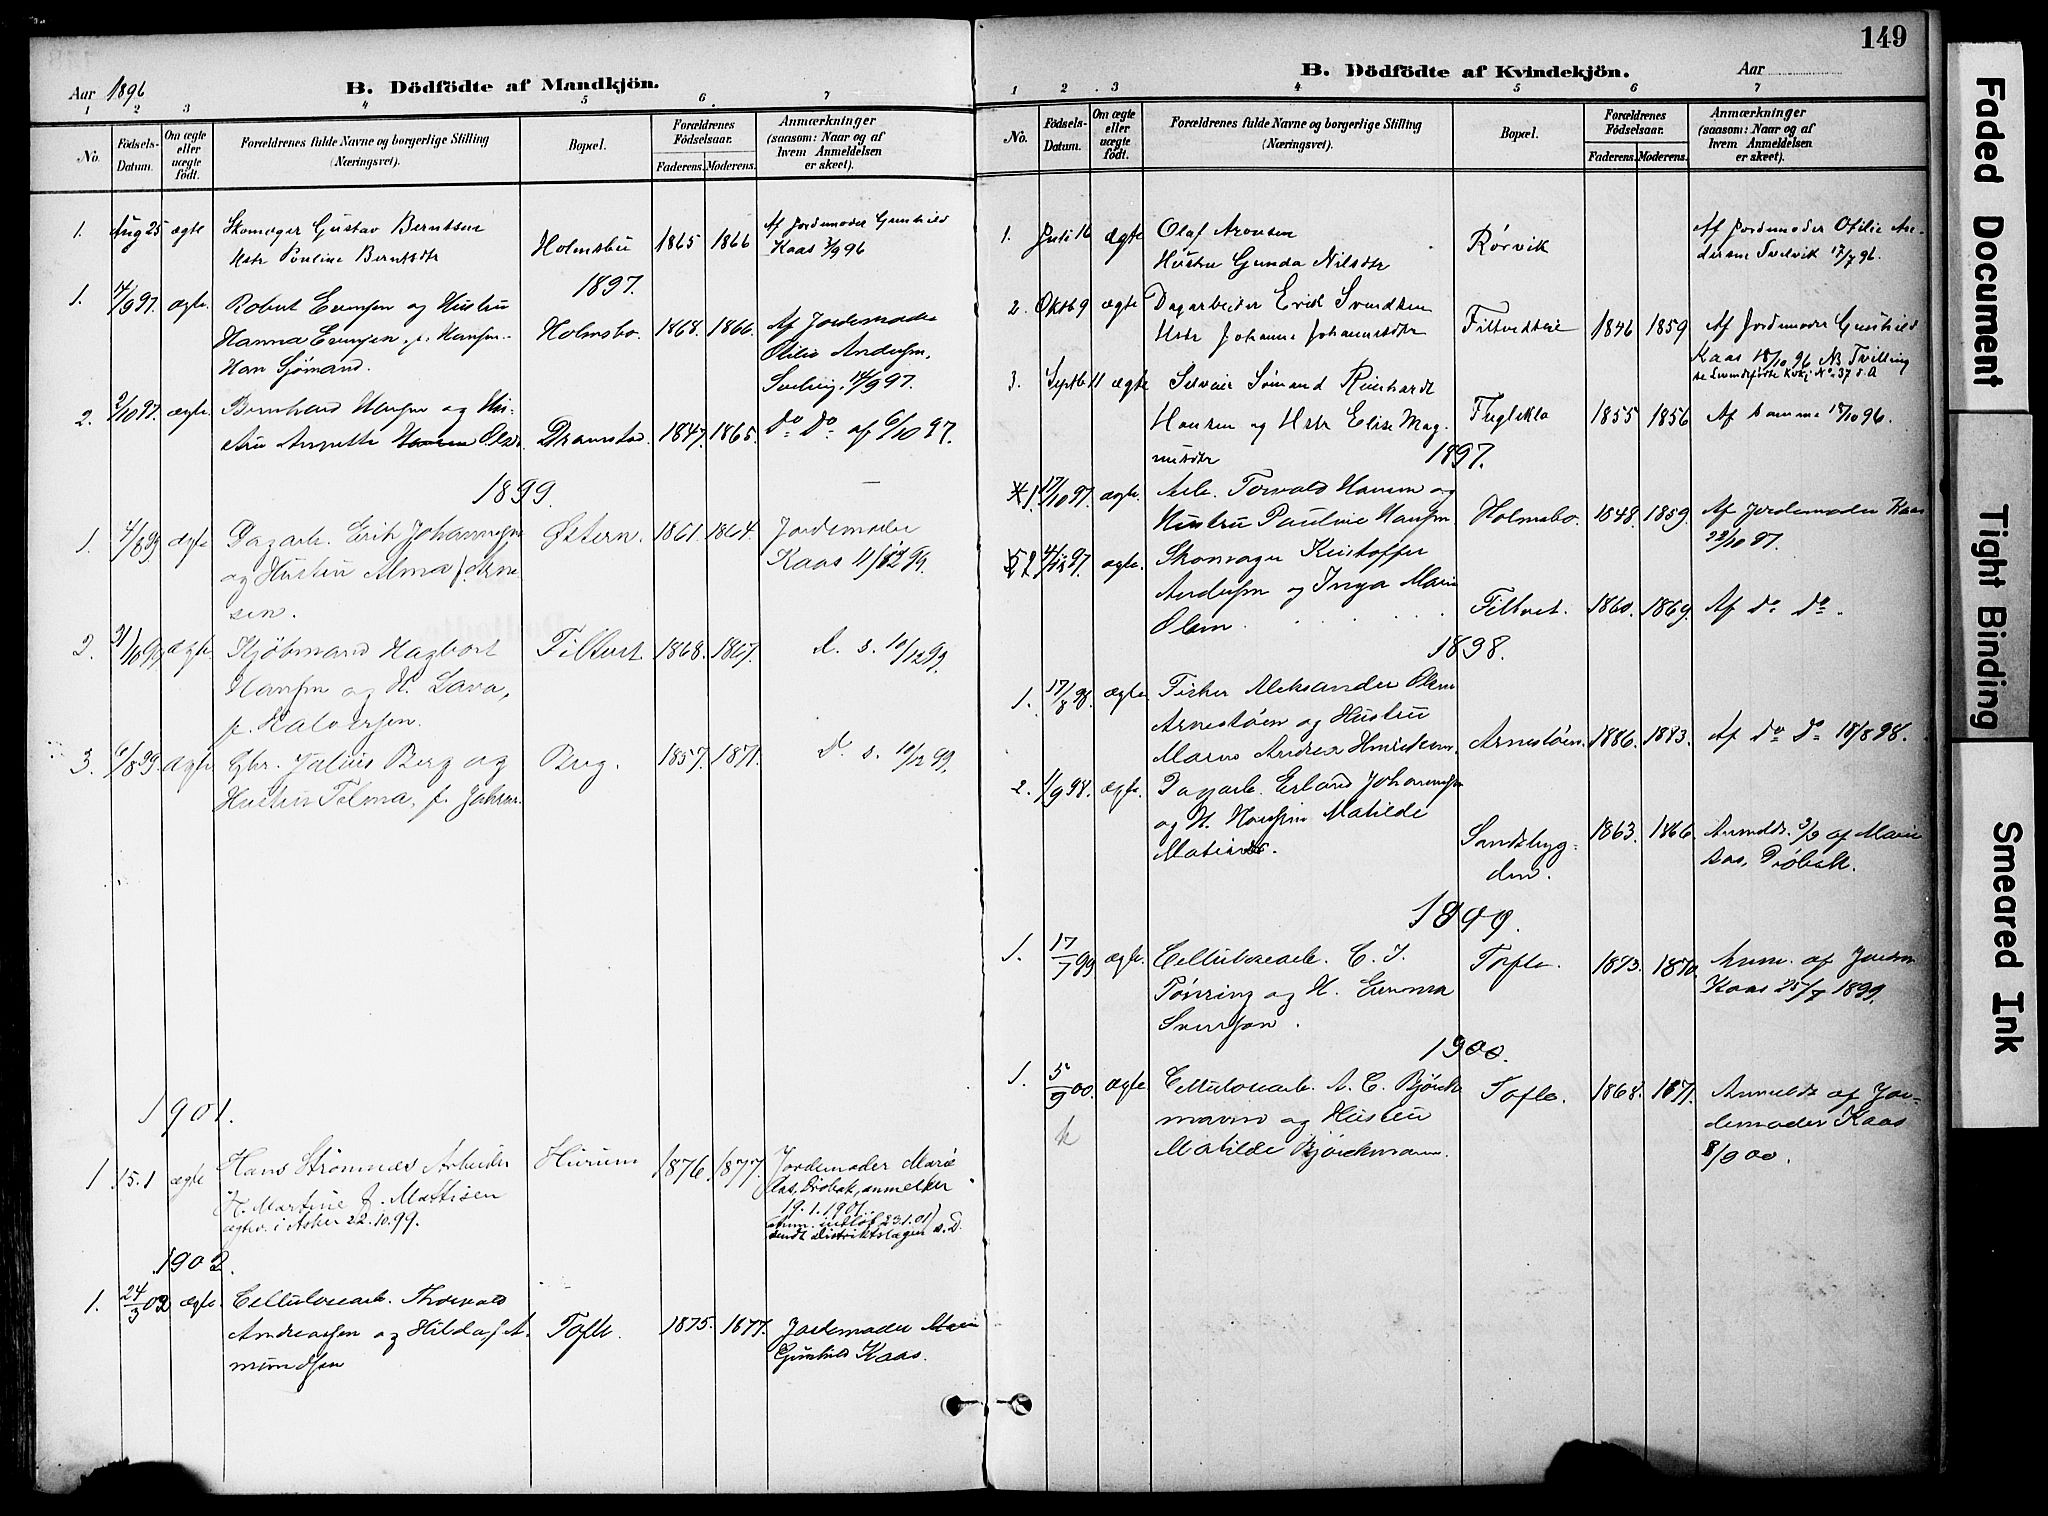 149
Aar 1896
B. Dödfödte af Mandkjön.
1 2 3 4 5 6. 7
No.
Födsels-Datum.
Om ægte eller uægte födt.
Forældrenes fulde Navne og borgerlige Stilling
(Næringsvei).
Bopæl.
Forældrenes Födselsaar.
Faderens. Moderens.
Anmærkninger
(saasom: Naar og af
hvem Anmeldelsen
er skeet).
1. Aug 25 ægte Skomager Gustav Berntsen
Hstr Pauline Berntsdtr Holmsbu 1865 1866 Af Jordemoder Gunhild
Kaas 3/9 96
1897.
1. 4/9 97. ægte. Robert Evensen og Hustru
Hanna Evensen, f. Hansen. Holmsbo. 1868. 1866. Af Jordemoder
Han Sjømand. Otilie Andersen,
Svelvig. 14/9 97.
2. 2/10 97. ægte. Bernhard Hansen og Hu-
stru Annette Olsd. Dramstad. 1847. 1865. do do af 6/10 97.
1899.
1. 4/8 99 ægte Dagarb. Erik Johannesen Østern. 1861. 1864. Jordemoder
og Hustru Alma f. Arne- Kaas 11/12 99.
sen.
2. ægte. Kjøbmand Hagbart Filtvet 1868. 1867. d. s. 10/12 99.
Hansen og H. Lava,
f. Halvorsen.
3. 6/8 99. ægte Gbr. Julius Berg og Berg. 1857. 1871. d. s. 10/12 99.
Hustru Tilma, f. Johnsen.
1901.
1 15.1 ægte Hans Strømnæs Arbeider Hurum 1876. 1877. Jordemoder Marie
H. Martine f. Mathisen Aas, Drøbak, anmelder
ægtev. i Asker 22.10.99. 19.1.1901.
(anm. indløb 23.1.01)
sendt distriktslægen s. D.
1902.
1. 24/3 02 ægte. Cellulosearb. Thorvald
Andreassen og Hilda f. A- Tofte. 1875. 1877. Jordemoder
mundsen Gunhild Kaas.
B. Dödfödte af Kvindekjön.
Aar
1 2 3 4 5 6 7
No.
Födsels-Datum.
Om ægte eller uægte födt.
Forældrenes fulde Navne og borgerlige Stilling
(Næringsvei).
Bopæl.
Forældrenes Födselsaar.
Faderens. Moderens.
Anmærkninger
(saasom: Naar og af
hvem Anmeldelsen
er skeet).
1. Juli 16 ægte Olaf Aronsen Rørvik Af Jordemoder Otilie An-
Hustru Gunda Nilsdtr dersen Svelvik 17/7 96.
2. Oktb 9 ægte Dagarbeider Erik Svendsen
Hstr Johanne Johannesdtr Filtvedteie 1846 1859 Af Jordemoder Gunhild
Kaas 18/10 96 NB Tvilling
se Levendefødte Kvkj No. 37 d. A
3. Septb 11 ægte Selveier Sømand Reinhardt
Hansen og Hstr Elise Mag- Fuglekla 1855 1856 Af samme 18/10 96.
nusdtr
1897.
1. 17/10 97. ægte. Arb. Torvald Hansen og
Hustru Pauline Hansen Holmsbo. 1848. 1859. Af Jordemoder Kaas
22/10 97.
2 4/12 97. ægte. Skomager Kristoffer
Andersen og Inga Marie
Olsen. Filtvet. 1860. 1869. Af do do.
1898.
1. 17/8 98. ægte. Fisker Aleksander Olsen
Arnestøen og Hustru
Maren Andrea Arnestøen. 1886. 1873. Af do do 18/8 98.
2. 1/9 98. ægte. Dagarb. Erland Johannesen
og H. Matilde Sandsbyg- 1863. 1866 Anmeldt. 3/9 af Marie
den. Aas, Drøbak.
1899.
1. 17/7 99 ægte. Cellulosearb. C. J. Tofte. 1873. 1870. Anm. af Jordm.
Tönsing og H. Emma Kaas 25/7 1899.
Svensson.
1900.
1. 5/9 00. ægte Cellulosearb. A. C. Björk- Tofte. 1868. 1871. Anmeldt af Jor-
mann og Hustru demoder Kaas
Matilde Björckmann. 8/9 00.
k
Faded Document
Tight Binding
Smeared Ink